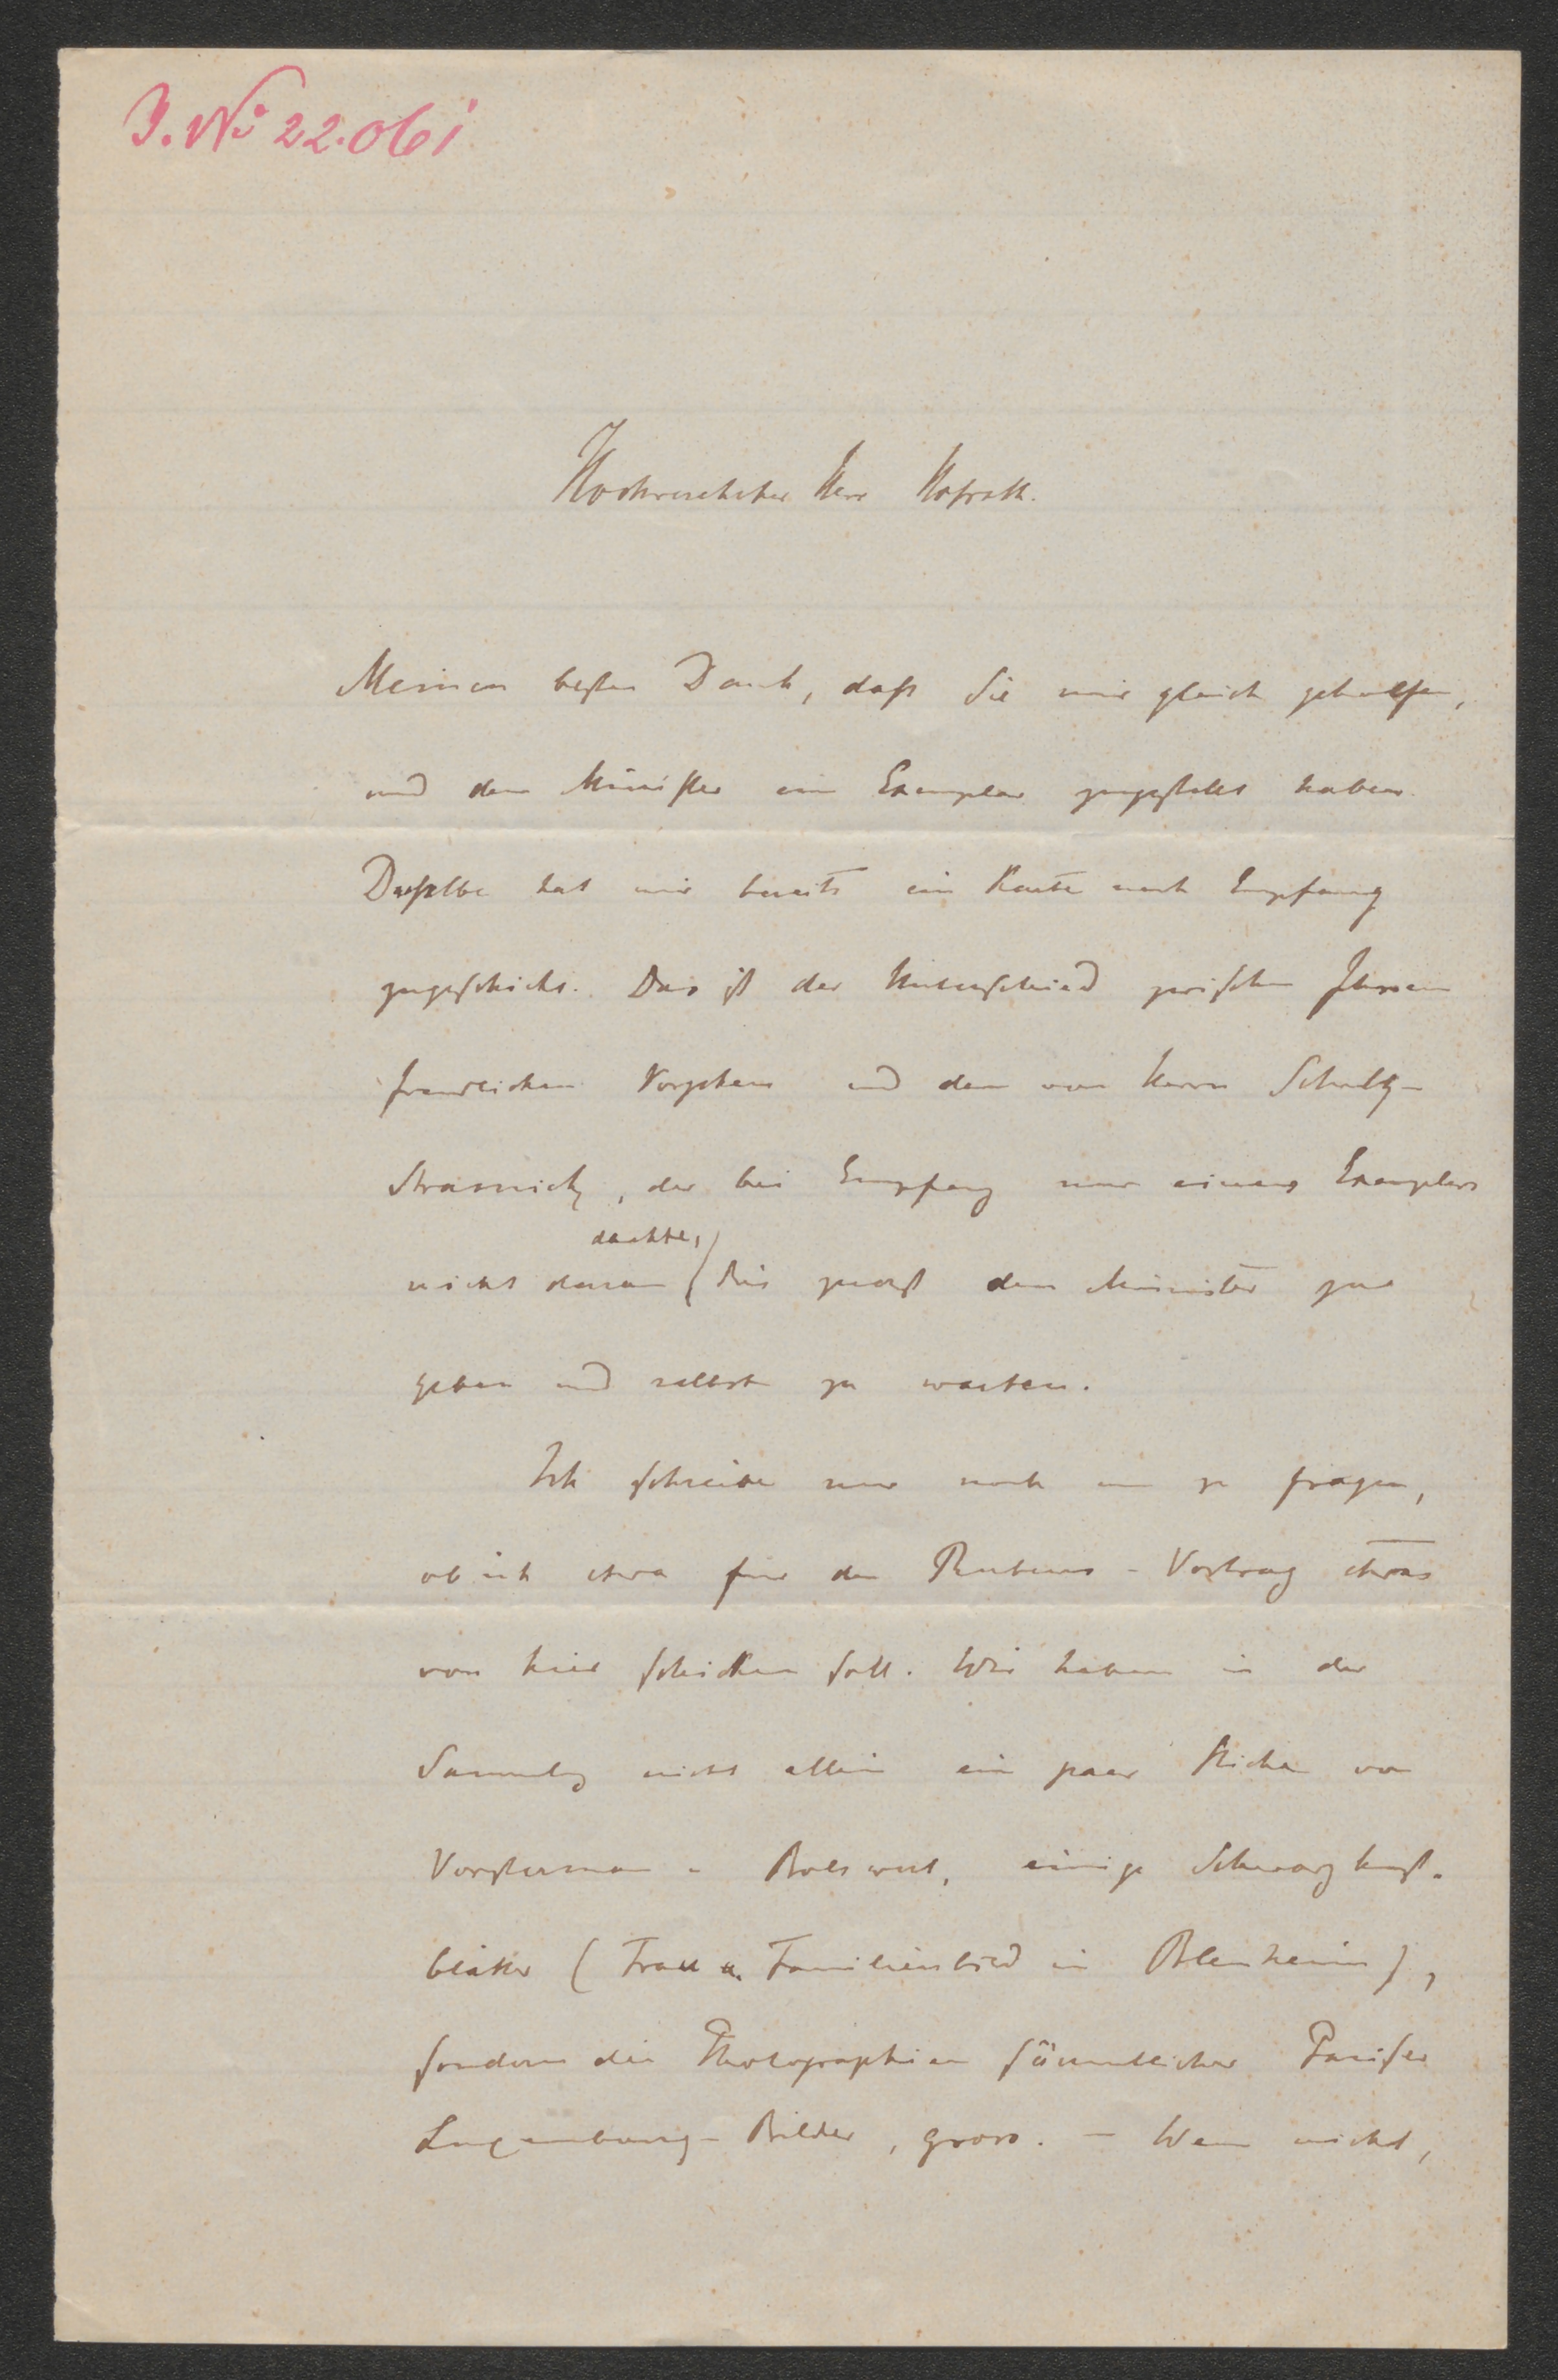 J. No 22.061
Hochverehrter Herr Hofrath.
Meinen besten Dank, daß Sie mir gleich geholfen,
und dem Minister ein Exemplar zugestellt haben.
Derselbe hat mir bereits ein Karte nach Empfang
zugeschickt. Das ist der Unterschied zwischen Ihrem
freundlichen Vorgehen und dem von Herrn Schultz-
Strasnicky, der bei Empfang nur eines Exemplars
dachte,
nicht daran dies zuerst dem Minister zu
geben und selbst zu warten.
Ich schreibe nur noch um zu fragen,
ob ich etwa für den Rubens-Vortrag etwas
von hier schicken soll. Wir haben in der
Sammlung nicht allein ein paar Stiche von
Vorsterman u Bolswert, einige Schwarzkunst-
blätter (Frau u. Familienbild in Blenheim),
sondern die Photographien sämmtlicher Pariser
Luxembourg-Bilder, gross. – Wenn nicht,